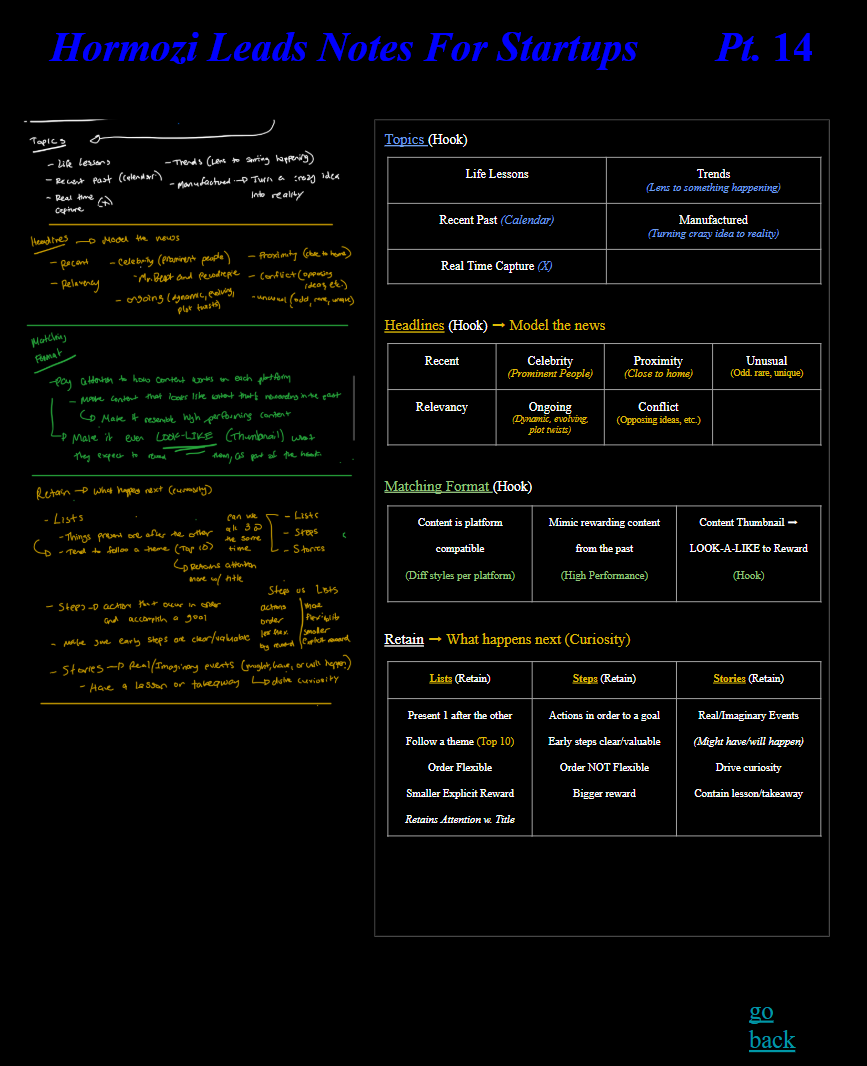 Hormozi Leads Notes For Startups Pt. 14
Topics
- Life Lessons
- Recent Past (Calendar)
- Real time
capture
- Trends (Lens to something happening)
- Manufactured → Turn a crazy idea
into reality
Headlines → Model the news
- Recent
- Relevancy
- Celebrity (prominent people)
- Mr. Beast and
- ongoing (dynamic, evolving,
plot twists)
- Proximity (close to home)
- Conflict (opposing
ideas, etc.)
- unusual (odd, rare, unique)
Matching
Format
- Pay attention to how content works on each platform
- Make content that looks like content that's rewarding in the past
↳ Make it resemble high performing content
↳ Make it even LOOK-LIKE (Thumbnail) what
they expect to reward them, as part of the hook
Retain → What happens next (curiosity)
- Lists
- Things present one after the other
- Tend to follow a theme (Top 10)
↳ Retains attention
more w/ title
can use
all 3 @
the same
time
- Lists
- Steps
- Stories
- Steps → actions that occur in order
and accomplish a goal
- make sure early steps are clear/valuable
Steps vs Lists
actions
order
less flex.
big reward
more
flexibility
smaller
explicit reward
- Stories → Real/Imaginary events (might, have, or will happen)
- Have a lesson or takeaway ↳ drive curiosity
Topics (Hook)
Life Lessons
Trends
(Lens to something happening)
Recent Past (Calendar)
Manufactured
(Turning crazy idea to reality)
Real Time Capture (X)
Headlines (Hook) → Model the news
Recent
Celebrity
(Prominent People)
Proximity
(Close to home)
Unusual
(Odd. rare, unique)
Relevancy
Ongoing
(Dynamic, evolving,
plot twists)
Conflict
(Opposing ideas, etc.)
Matching Format (Hook)
Content is platform
compatible
(Diff styles per platform)
Mimic rewarding content
from the past
(High Performance)
Content Thumbnail →
LOOK-A-LIKE to Reward
(Hook)
Retain → What happens next (Curiosity)
Lists (Retain)
Steps (Retain)
Stories (Retain)
Present 1 after the other
Follow a theme (Top 10)
Order Flexible
Smaller Explicit Reward
Retains Attention w. Title
Actions in order to a goal
Early steps clear/valuable
Order NOT Flexible
Bigger reward
Real/Imaginary Events
(Might have/will happen)
Drive curiosity
Contain lesson/takeaway
go
back